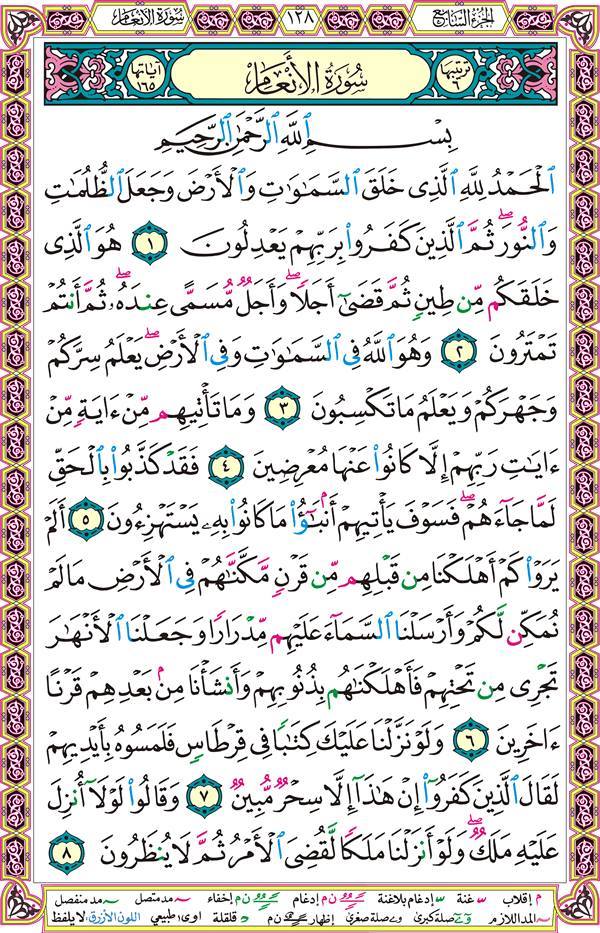 الجزء السابع
١٢٨
سورة الأنعام
ترتيبها ٦
سُورَةُ الأَنْعَام
آياتها ١٦٥
بِسْمِ ٱللَّهِ ٱلرَّحْمَٰنِ ٱلرَّحِيمِ
ٱلْحَمْدُ لِلَّهِ ٱلَّذِى خَلَقَ ٱلسَّمَٰوَٰتِ وَٱلْأَرْضَ وَجَعَلَ ٱلظُّلُمَٰتِ
وَٱلنُّورَ ۖ ثُمَّ ٱلَّذِينَ كَفَرُوا۟ بِرَبِّهِمْ يَعْدِلُونَ ١ هُوَ ٱلَّذِى
خَلَقَكُم مِّن طِينٍ ثُمَّ قَضَىٰٓ أَجَلًا ۖ وَأَجَلٌ مُّسَمًّى عِندَهُۥ ۖ ثُمَّ أَنتُمْ
تَمْتَرُونَ ٢ وَهُوَ ٱللَّهُ فِى ٱلسَّمَٰوَٰتِ وَفِى ٱلْأَرْضِ ۖ يَعْلَمُ سِرَّكُمْ
وَجَهْرَكُمْ وَيَعْلَمُ مَا تَكْسِبُونَ ٣ وَمَا تَأْتِيهِم مِّنْ ءَايَةٍ مِّنْ
ءَايَٰتِ رَبِّهِمْ إِلَّا كَانُوا۟ عَنْهَا مُعْرِضِينَ ٤ فَقَدْ كَذَّبُوا۟ بِٱلْحَقِّ
لَمَّا جَآءَهُمْ ۖ فَسَوْفَ يَأْتِيهِمْ أَنۢبَٰٓؤُا۟ مَا كَانُوا۟ بِهِۦ يَسْتَهْزِءُونَ ٥ أَلَمْ
يَرَوْا۟ كَمْ أَهْلَكْنَا مِن قَبْلِهِم مِّن قَرْنٍ مَّكَّنَّٰهُمْ فِى ٱلْأَرْضِ مَا لَمْ
نُمَكِّن لَّكُمْ وَأَرْسَلْنَا ٱلسَّمَآءَ عَلَيْهِم مِّدْرَارًا وَجَعَلْنَا ٱلْأَنْهَٰرَ
تَجْرِى مِن تَحْتِهِمْ فَأَهْلَكْنَٰهُم بِذُنُوبِهِمْ وَأَنشَأْنَا مِنۢ بَعْدِهِمْ قَرْنًا
ءَاخَرِينَ ٦ وَلَوْ نَزَّلْنَا عَلَيْكَ كِتَٰبًا فِى قِرْطَاسٍ فَلَمَسُوهُ بِأَيْدِيهِمْ
لَقَالَ ٱلَّذِينَ كَفَرُوٓا۟ إِنْ هَٰذَآ إِلَّا سِحْرٌ مُّبِينٌ ٧ وَقَالُوا۟ لَوْلَآ أُنزِلَ
عَلَيْهِ مَلَكٌ ۖ وَلَوْ أَنزَلْنَا مَلَكًا لَّقُضِىَ ٱلْأَمْرُ ثُمَّ لَا يُنظَرُونَ ٨
م إقلاب غنة إدغام بلاغنة ن م إدغام ن م إخفاء مد متصل مد منفصل
المد اللازم صلة كبرى صلة صغرى إظهار ن م قلقلة اوى طبيعي اللون الأزرق: لا يلفظ